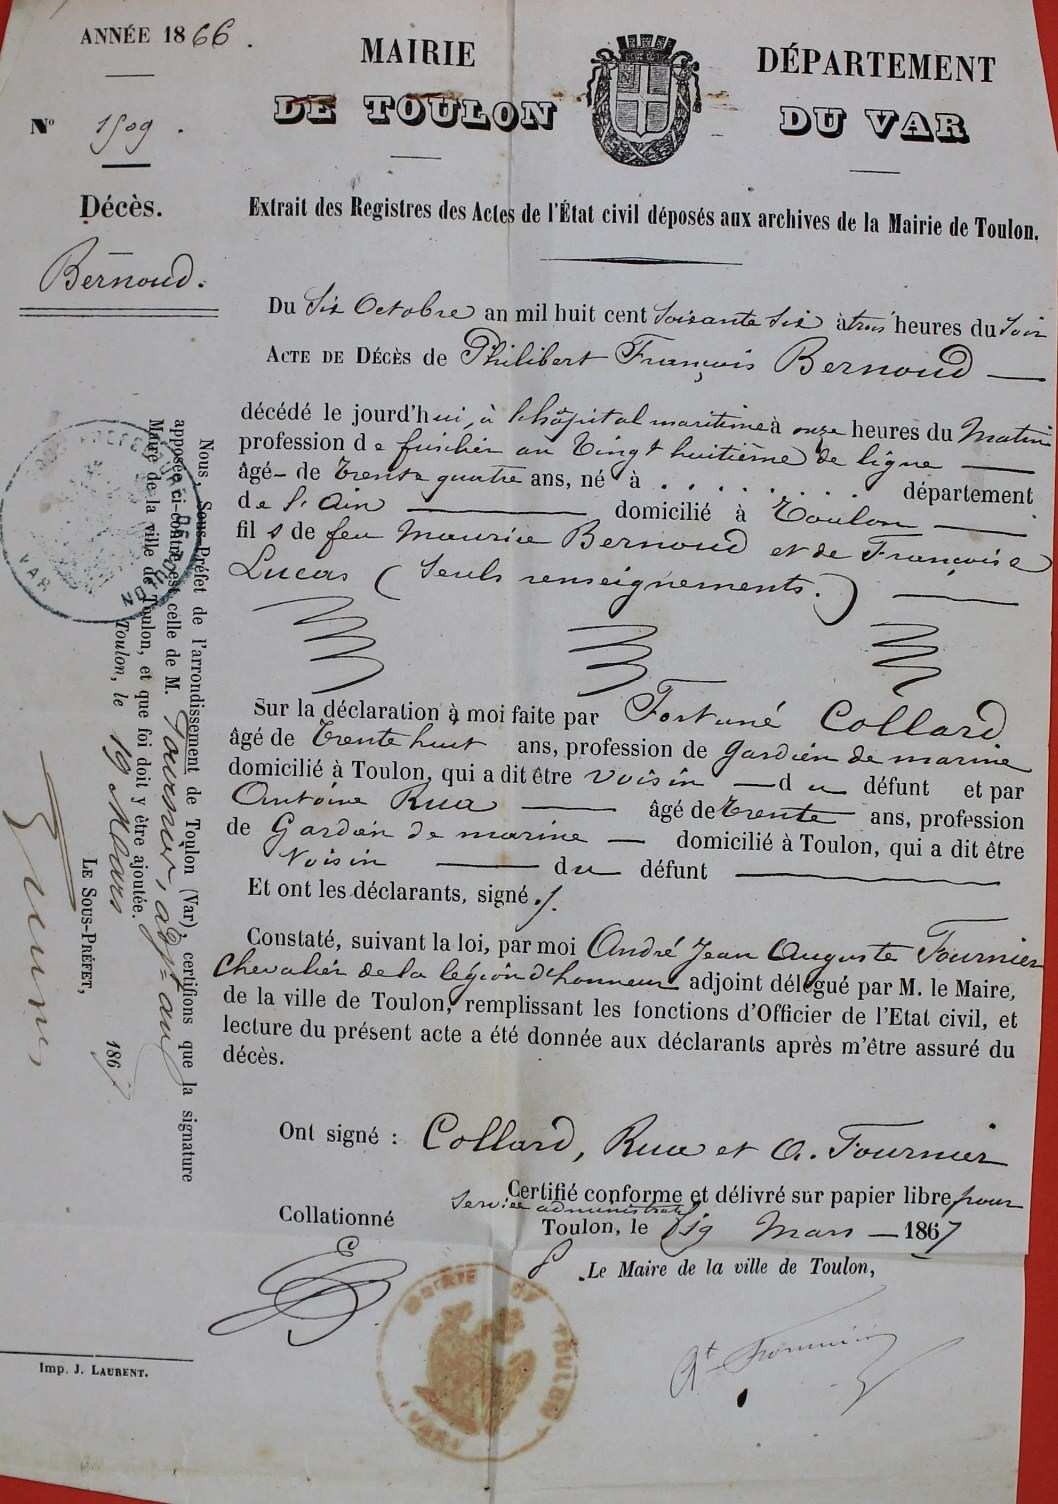 ANNÉE 1866.
MAIRIE
DE TOULON
DÉPARTEMENT
DU VAR
N° 1509.
Décès.
Bernoud.
Extrait des Registres des Actes de l'État civil déposés aux archives de la Mairie de Toulon.
Du Six Octobre an mil huit cent soixante six à trois heures du Soir
ACTE DE DÉCÈS de Philibert François Bernoud
décédé le jourd'hui, à l'hôpital maritime à onze heures du Matin
profession de fusilier au Vingt huitième de ligne
âgé de trente quatre ans, né à . . . . . . . . département
de l'Ain domicilié à Toulon
fils de feu Maurice Bernoud et de Françoise
Lucas (Seuls renseignements.)
Sur la déclaration à moi faite par Fortuné Collard
âgé de trente huit ans, profession de gardien de marine
domicilié à Toulon, qui a dit être voisin du défunt et par
Antoine Rua âgé de trente ans, profession
de Gardien de marine domicilié à Toulon, qui a dit être
Voisin du défunt
Et ont les déclarants, signé
Constaté, suivant la loi, par moi André Jean Auguste Fournier
Chevalier de la légion d'honneur adjoint délégué par M. le Maire,
de la ville de Toulon, remplissant les fonctions d'Officier de l'Etat civil, et
lecture du présent acte a été donnée aux déclarants après m'être assuré du
décès.
Ont signé : Collard, Rua et A. Fournier
Certifié conforme et délivré sur papier libre pour
Service administratif
Collationné
Toulon, le 19 Mars 1867
Le Maire de la ville de Toulon,
At Fournier
MAIRIE DE TOULON
(VAR)
Nous, Sous-Préfet de l'arrondissement de Toulon (Var), certifions que la signature
apposée ci-contre est celle de M. Fournier, adjt au
Maire de la ville de Toulon, et que foi doit y être ajoutée.
Toulon, le 19 Mars 1867
LE SOUS-PRÉFET,
SOUS PRÉFECTURE DE TOULON
VAR
Imp. J. LAURENT.